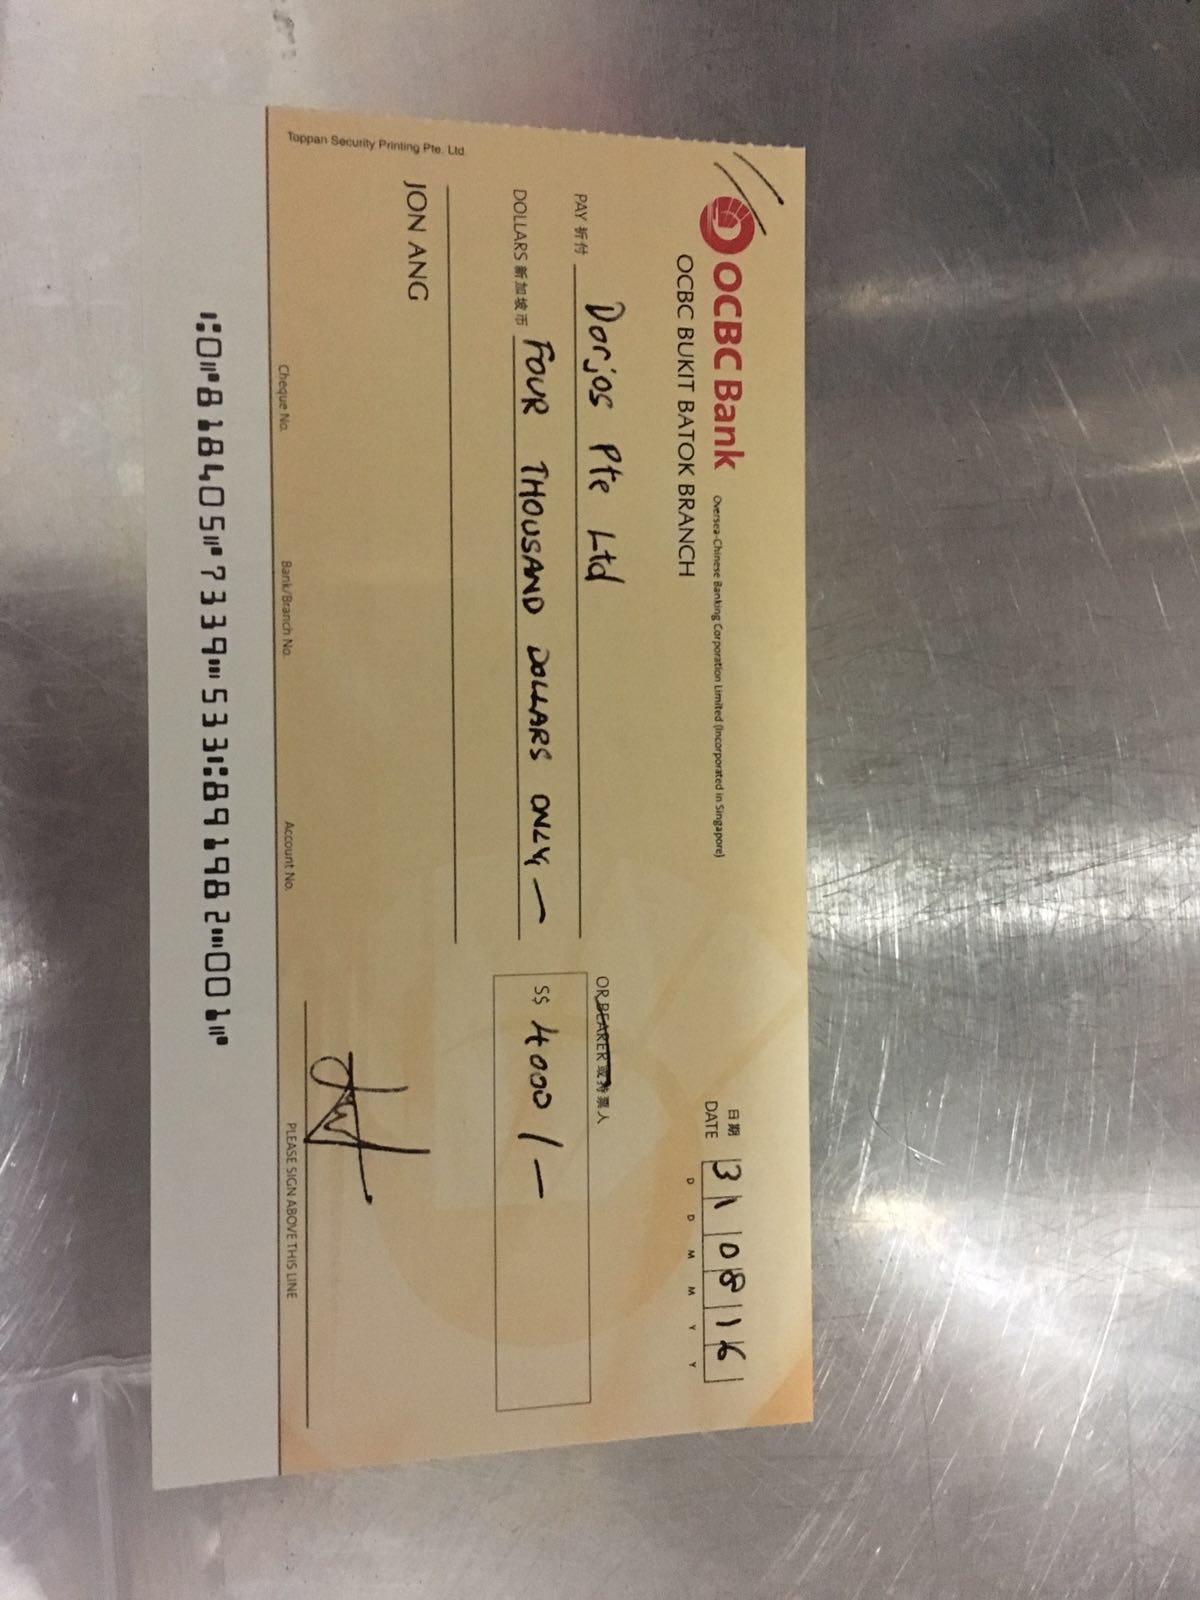 OCBC Bank Oversea-Chinese Banking Corporation Limited (Incorporated in Singapore)
OCBC BUKIT BATOK BRANCH
日期
DATE 31 08 16
D D M M Y Y
PAY 祈付 Dorjos Pte Ltd
OR BEARER 或持票人
DOLLARS 新加坡币 FOUR THOUSAND DOLLARS ONLY —
S$ 4000/—
JON ANG
Toppan Security Printing Pte. Ltd.
Cheque No. Bank/Branch No. Account No.
PLEASE SIGN ABOVE THIS LINE
⑆0⑈818405⑈7339⑉533⑆891982⑉001⑈